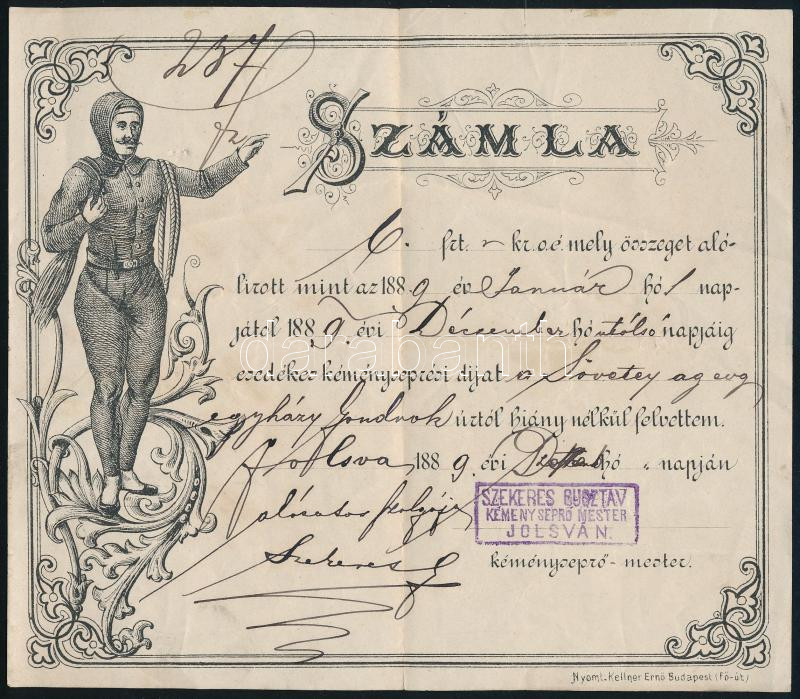 237
SZÁMLA
6. frt. kr. o.é. mely összeget aló-
lirott mint az 1889 év Január hó 1 nap-
jától 1889. évi December hó utolsó napjáig
esedékes kéményseprési dijat a ag. evg
egyházy Gondnok úrtól hiány nélkül felvettem.
Jolsva 1889. évi hó napján
alázatos szolgája
SZEKERES GUSZTÁV
KÉMÉNYSEPRŐ MESTER
JOLSVÁN.
Szekeres G
kéményseprő-mester.
Nyomt. Kellner Ernő Budapest (Fő-út)
darabanth